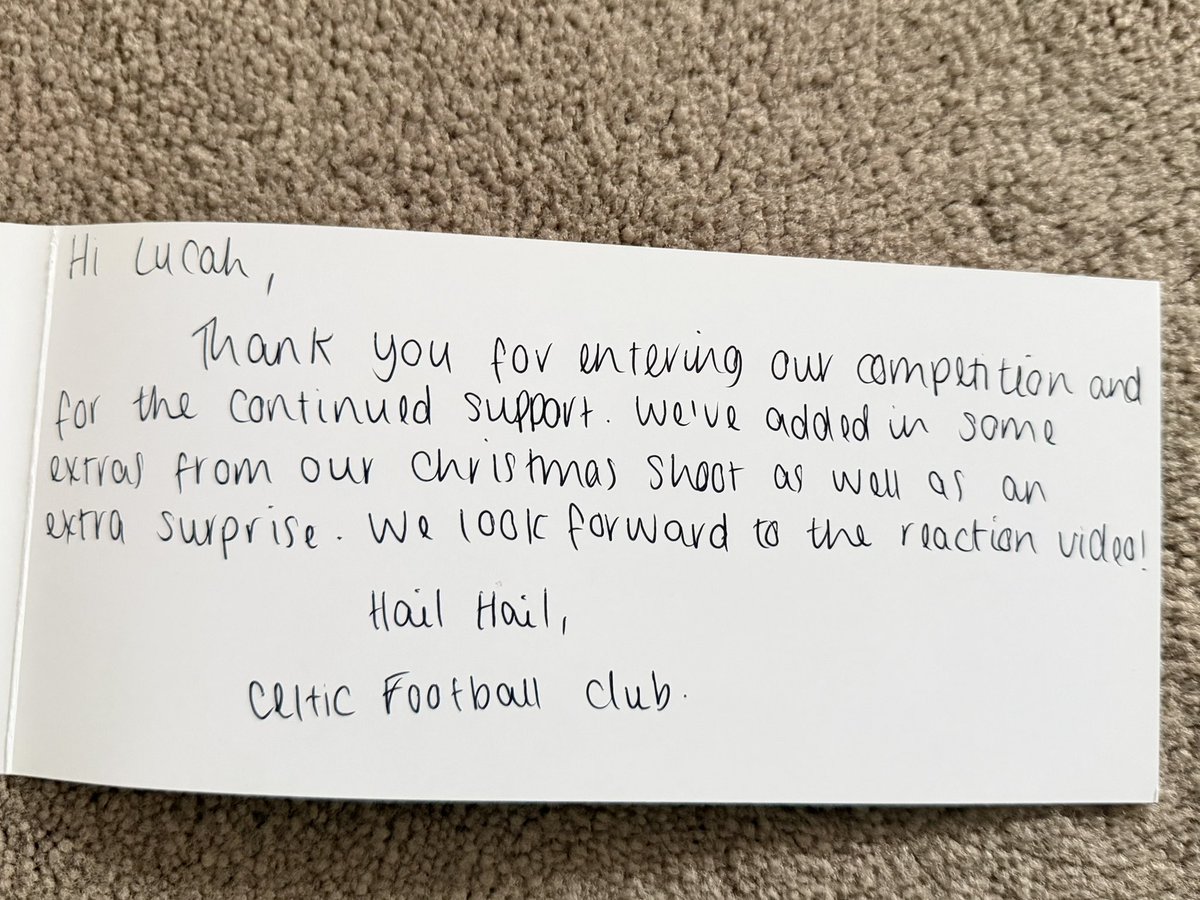 Hi Lucah,
Thank you for entering our competition and
for the continued support. We've added in some
extras from our Christmas shoot as well as an
extra surprise. We look forward to the reaction video!
Hail Hail,
Celtic Football Club.